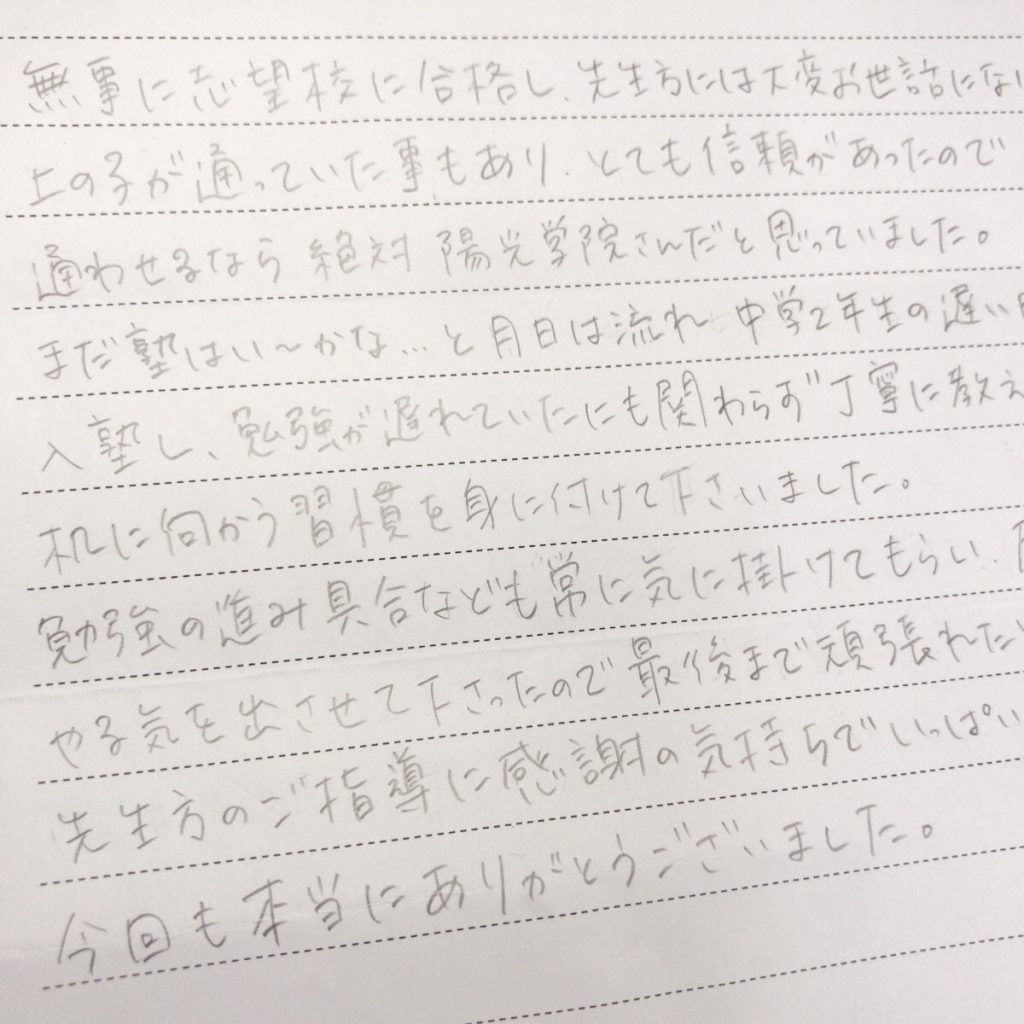 無事に志望校に合格し、先生方には大変お世話にな
上の子が通っていた事もあり、とても信頼があったので
通わせるなら絶対陽光学院さんだと思っていました。
まだ塾はい〜かな…と月日は流れ中学2年生の遅い
入塾し、勉強が遅れていたにも関わらず丁寧に教え
机に向かう習慣を身に付けて下さいました。
勉強の進み具合なども常に気に掛けてもらい、
やる気を出させて下さったので最後まで頑張れた
先生方のご指導に感謝の気持ちでいっぱい
今回も本当にありがとうございました。